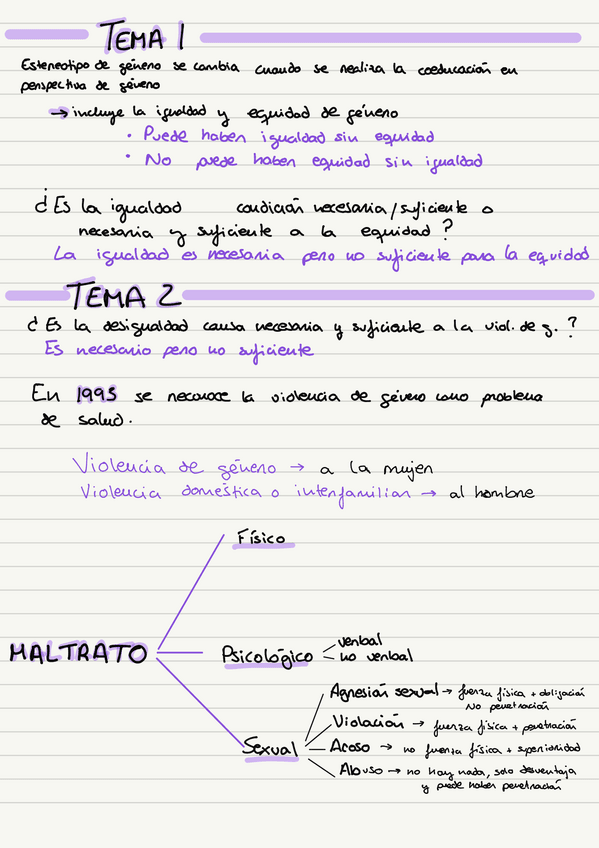 TEMA 1
Estereotipo de género se cambia cuando se realiza la coeducación en
perspectiva de género
→ incluye la igualdad y equidad de género
• Puede haber igualdad sin equidad
• No puede haber equidad sin igualdad
¿Es la igualdad condición necesaria/suficiente o
necesaria y suficiente a la equidad?
La igualdad es necesaria pero no suficiente para la equidad
TEMA 2
¿Es la desigualdad causa necesaria y suficiente a la viol. de g.?
Es necesario pero no suficiente
En 1995 se reconoce la violencia de género como problema
de salud.
Violencia de género → a la mujer
Violencia doméstica o interfamiliar → al hombre
MALTRATO
Físico
Psicológico
verbal
no verbal
Sexual
Agresión sexual → fuerza física + obligación
No penetración
Violación → fuerza física + penetración
Acoso → no fuerza física + superioridad
Abuso → no hay nada, solo desventaja
y puede haber penetración